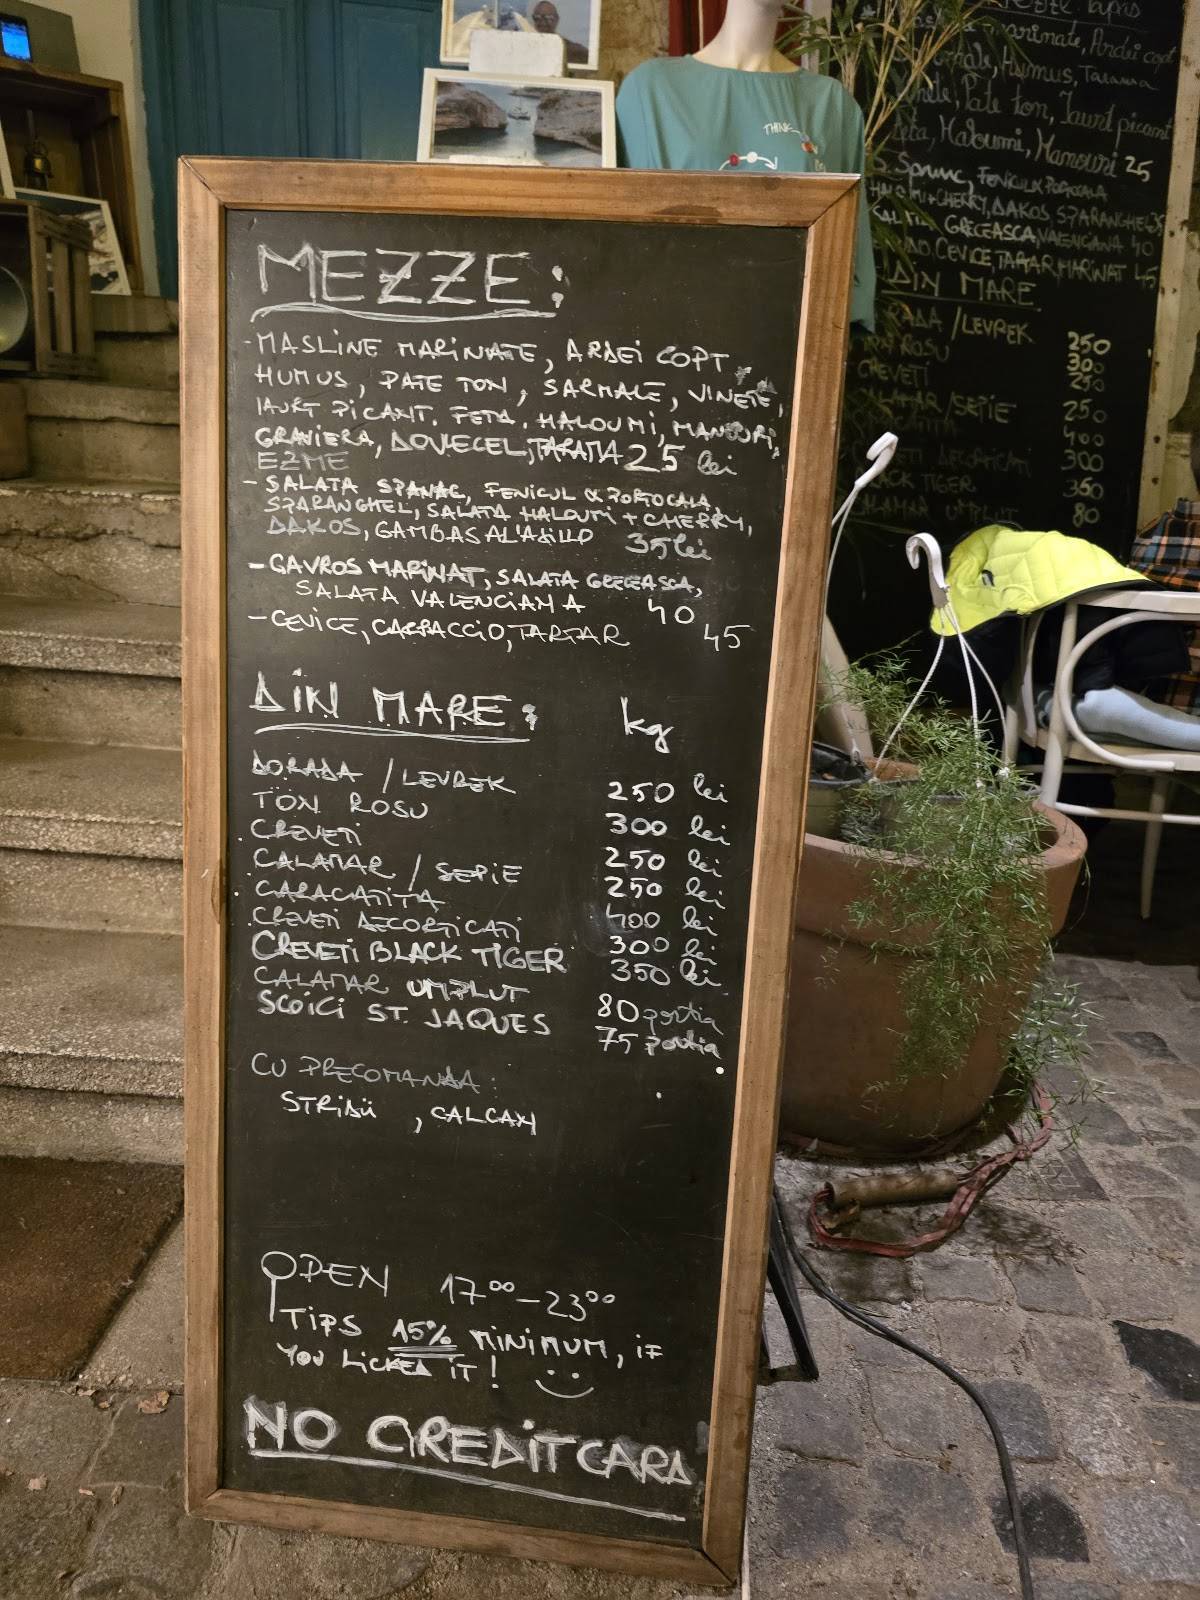 MEZZE:
- MASLINE MARINATE, ARDEI COPT,
HUMUS, PATE TON, SARMALE, VINETE,
IAURT PICANT. FETA, HALOUMI, MANOURI,
GRAVIERA, DOVLECEL, TARAMA 25 lei
EZME
- SALATA SPANAC, FENICUL & PORTOCALA,
SPARANGHEL, SALATA HALOUMI + CHERRY,
DAKOS, GAMBAS AL'AJILLO 35 lei
- GAVROS MARINAT, SALATA GRECEASCA,
SALATA VALENCIANA 40
- CEVICE, CARPACCIO, TARTAR 45
DIN MARE: kg
DORADA / LEVREK 250 lei
TON ROSU 300 lei
CREVETI 250 lei
CALAMAR / SEPIE 250 lei
CARACATITA 400 lei
CREVETI DECORTICATI 300 lei
CREVETI BLACK TIGER 350 lei
CALAMAR UMPLUT 80 portia
SCOICI ST. JAQUES 75 portia
CU PRECOMANDA:
STRIDII, CALCAN
OPEN 17⁰⁰-23⁰⁰
TIPS 15% MINIMUM, IF
YOU LICKED IT!
NO CREDIT CARD
THINK
Tapas
marinate, Ardei copt
Humus, Tarama
Pate ton, Iaurt picant
Feta, Haloumi, Manouri 25
FENICUL & PORTOCALA
CHERRY, DAKOS, SPARANGHEL 35
GRECEASCA, VALENCIANA 40
CEVICE, TARTAR, MARINAT 45
DIN MARE
/ LEVREK 250
ROSU 300
CREVETI 250
CALAMAR / SEPIE 250
400
300
BLACK TIGER 350
CALAMAR UMPLUT 80